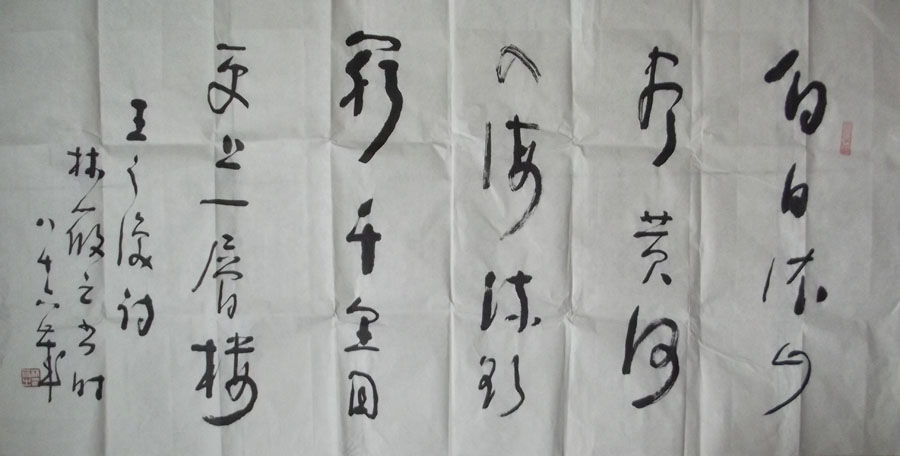 白日依山
尽黄河
入海流欲
穷千里目
更上一层楼
王之涣诗
林筱之书时
八十六